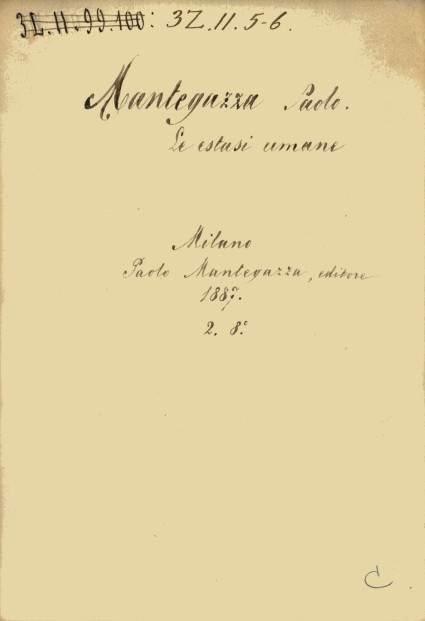 3L.11.99.100: 3Z.11.5-6.
Mantegazza Paolo.
Le estasi umane
Milano
Paolo Mantegazza, editore
1887.
2. 8.°
C